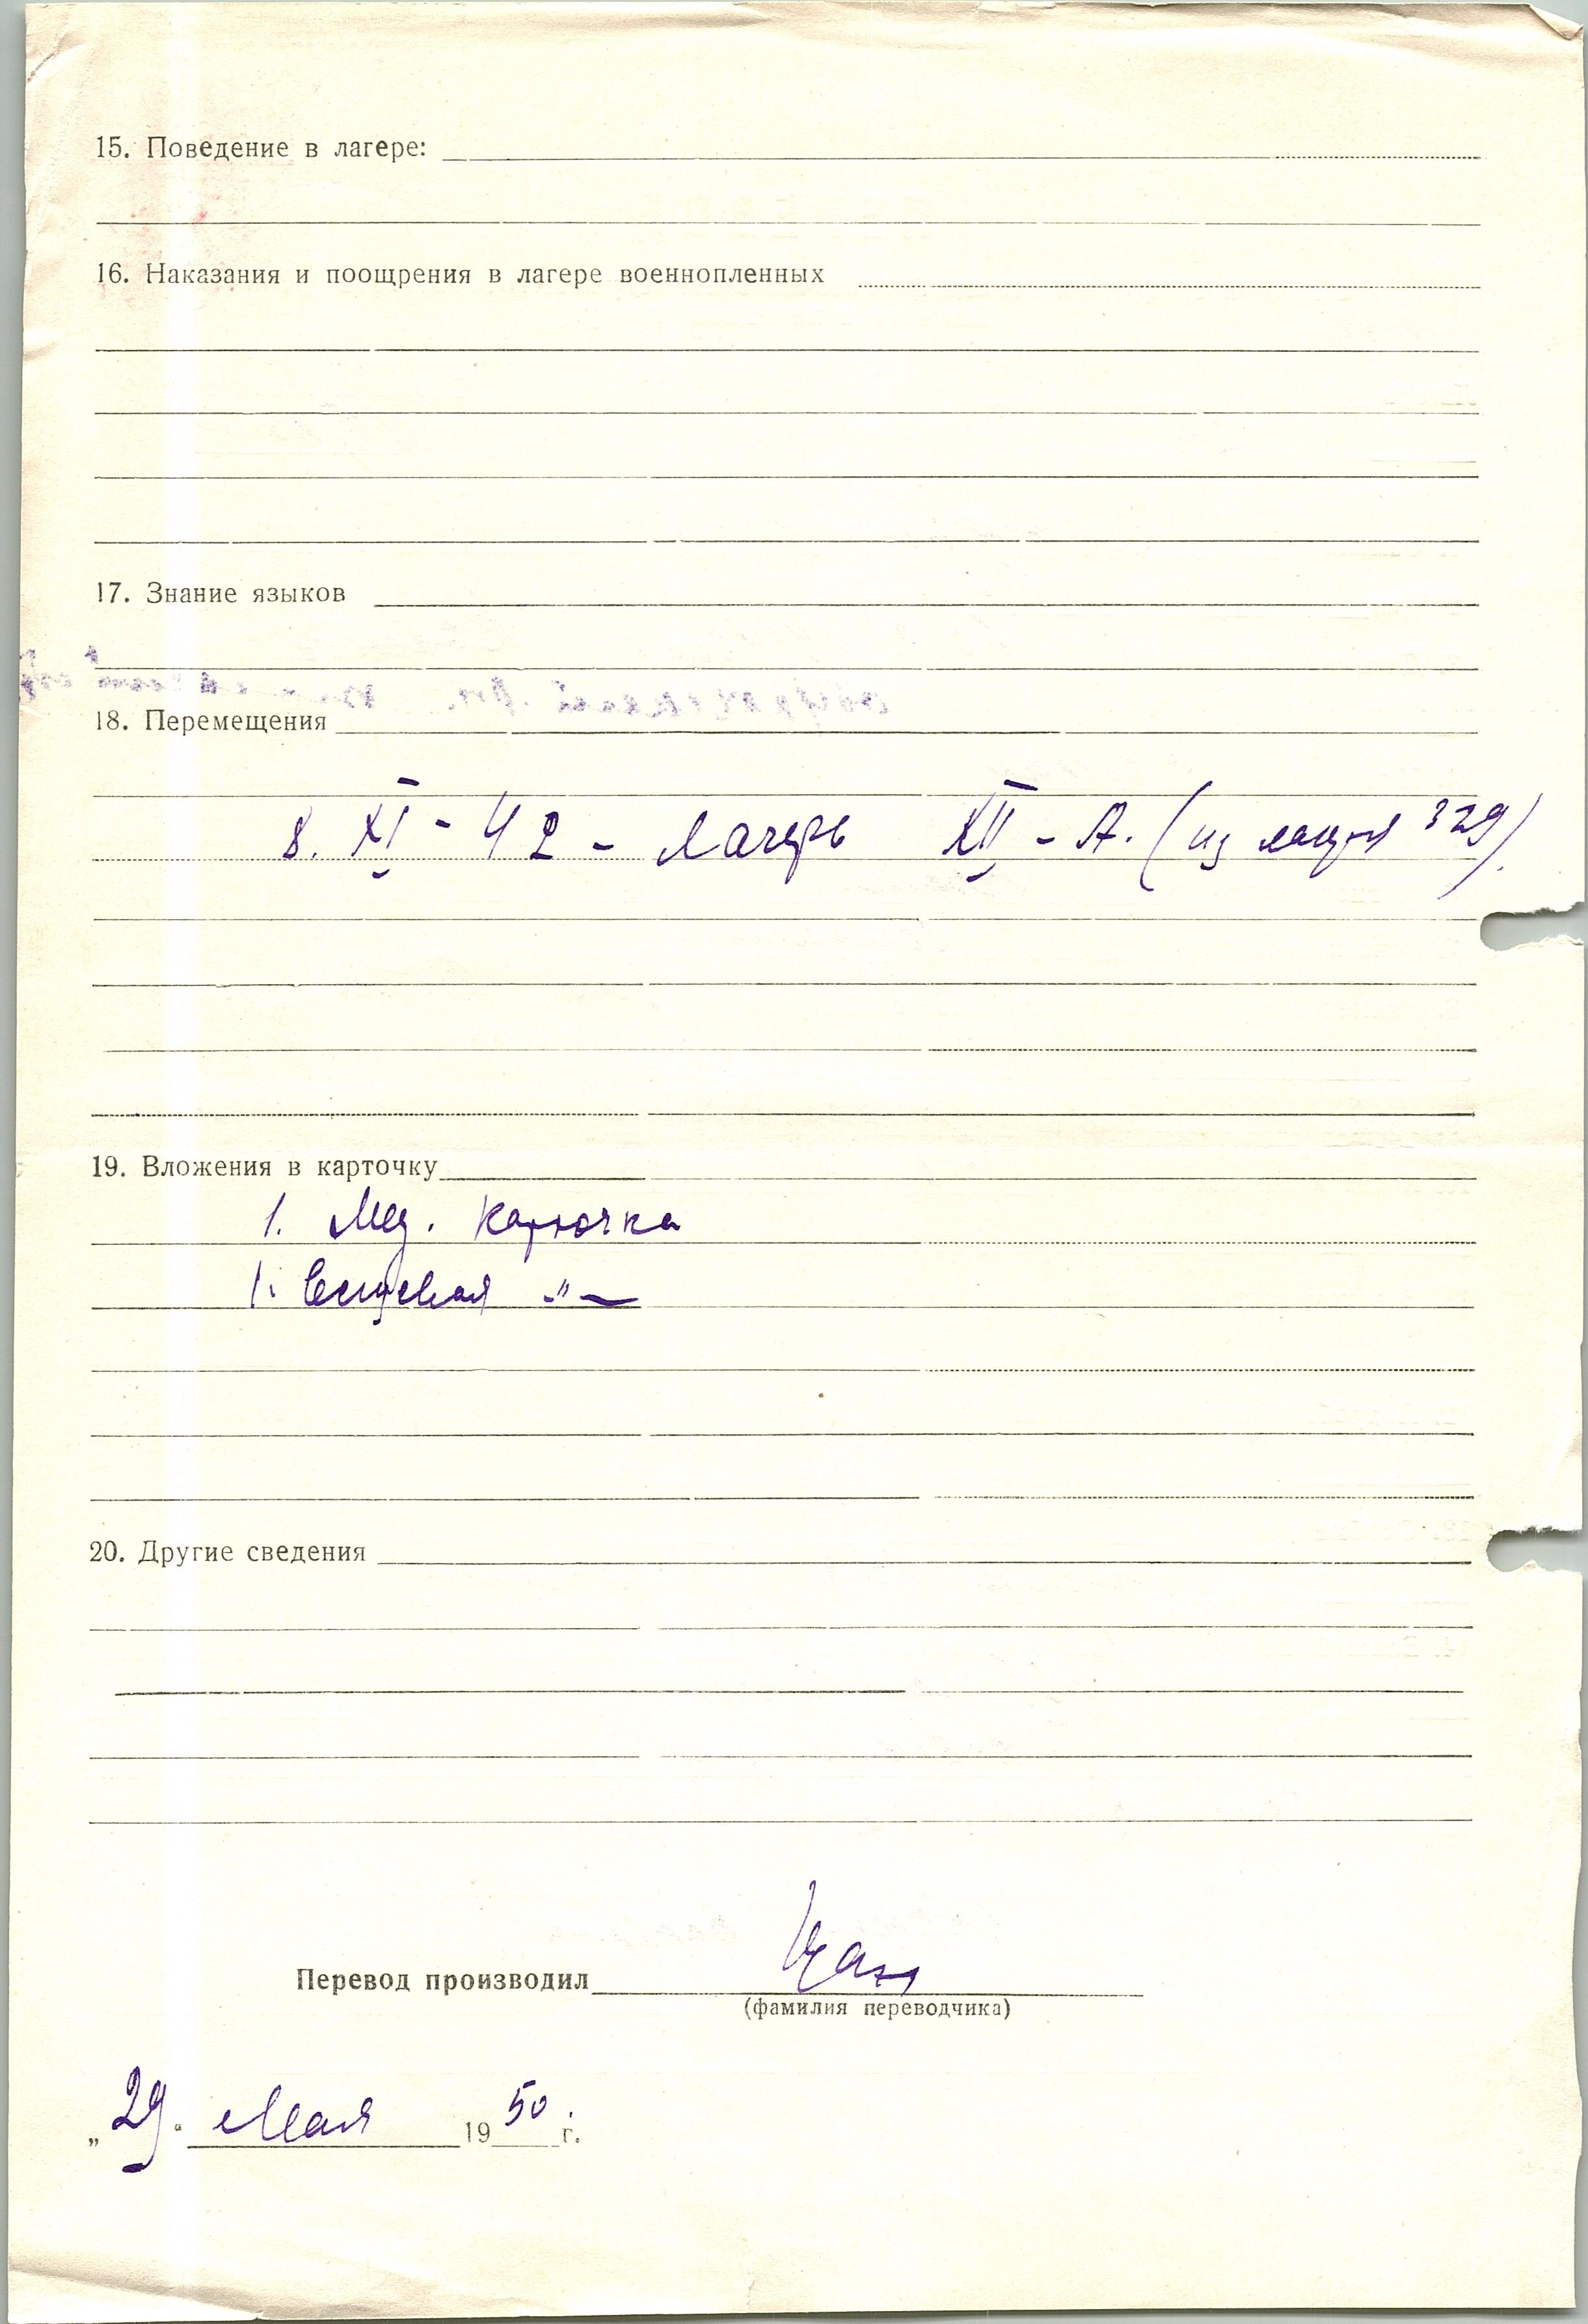 15. Поведение в лагере:
16. Наказания и поощрения в лагере военнопленных
17. Знание языков
18. Перемещения
8. XI - 42 - Лагерь XII - А. (из лагеря 329).
19. Вложения в карточку
1. Мед. карточка
1. Вещевая -"-
20. Другие сведения
Перевод производил
(фамилия переводчика)
„29" Мая 1950 г.